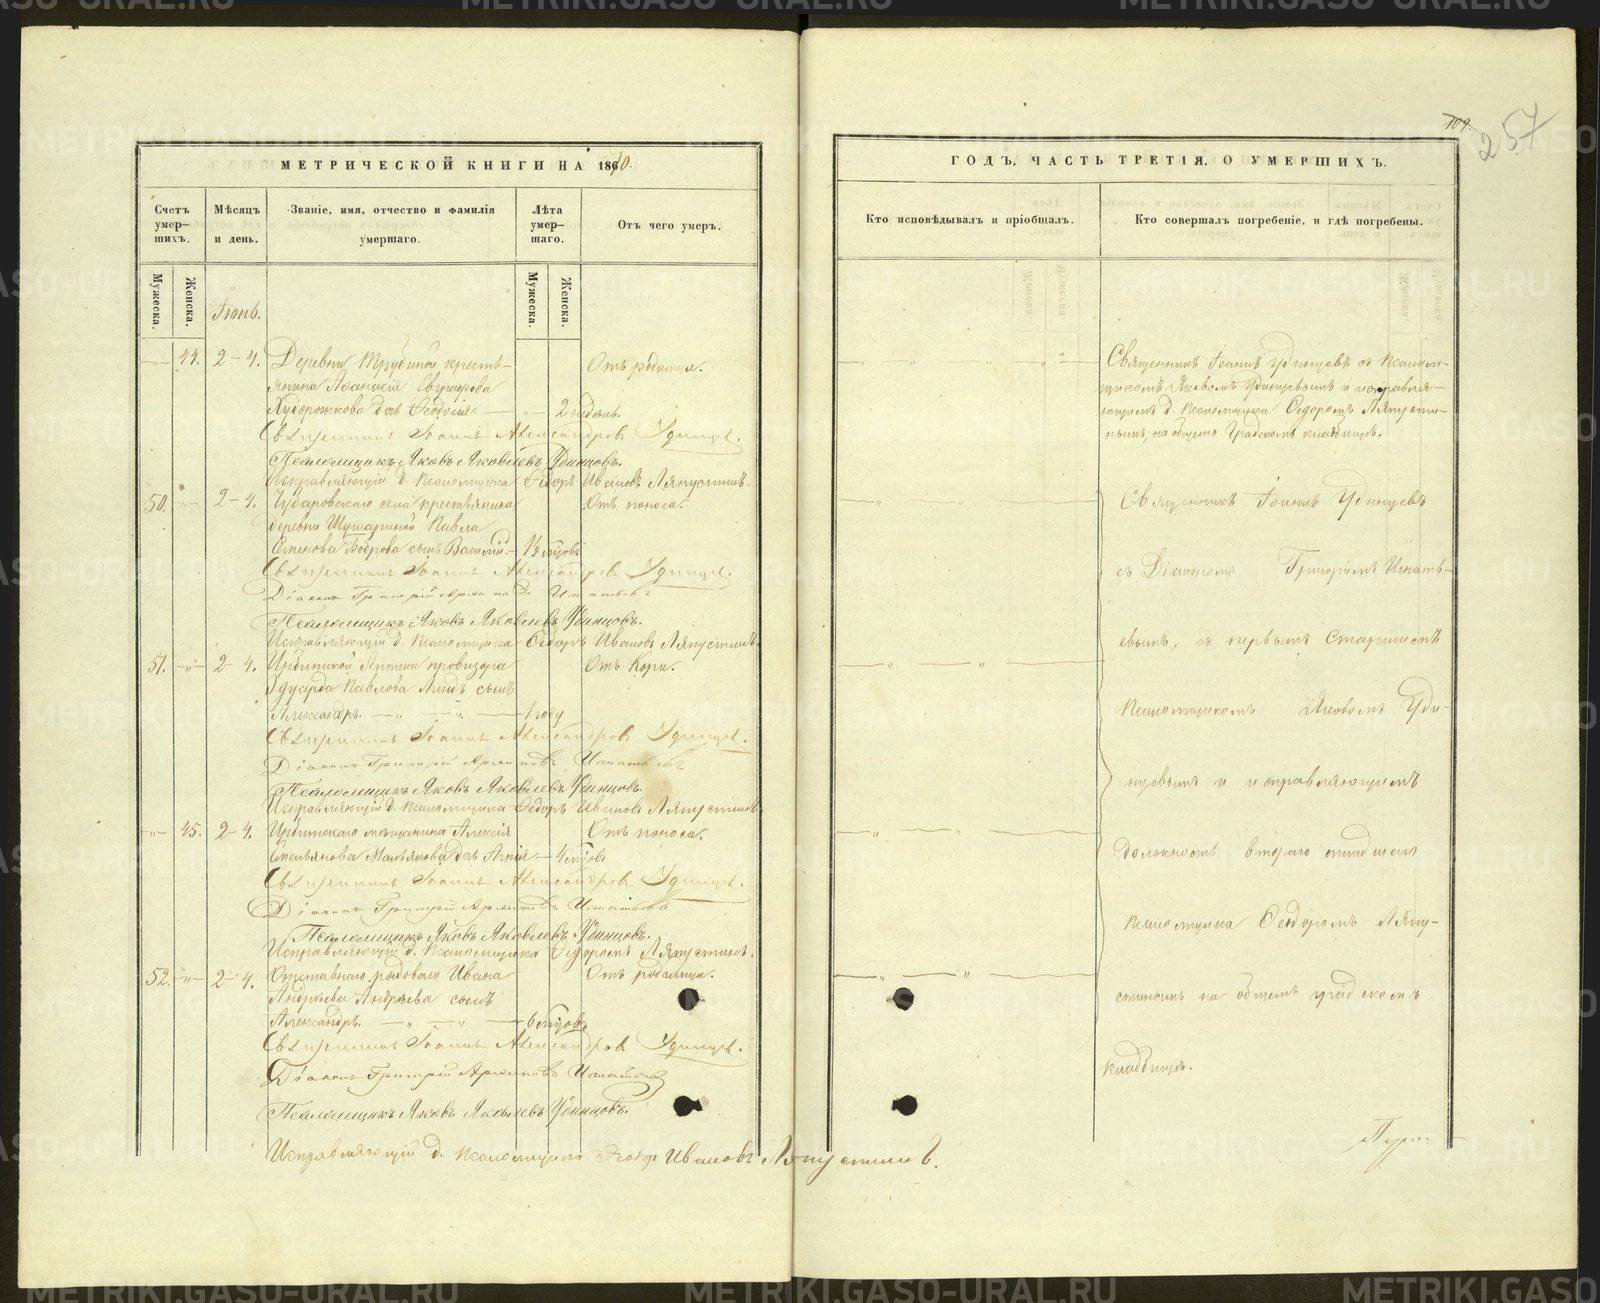 МЕТРИЧЕСКОЙ КНИГИ НА 1870.
Счетъ умер–шихъ.
Мѣсяцъ и день.
Званіе, имя, отчество и фамилія умершаго.
Лѣта умер–шаго.
Отъ чего умеръ.
Мужеска.
Женска.
Мужеска.
Женска.
Іюнь.
44. 2–4. Деревни Трубиной крестья–
Отъ родимца.
янина Аѳанасія Евграфова
Худорожкова дочь Ѳеодосія. 2 недѣль.
Священникъ Іоаннъ Александровъ Удинцевъ.
Псаломщикъ Яковъ Яковлевъ Удинцовъ.
Исправляющій д. Псаломщика Ѳедоръ Ивановъ Ляпустинъ.
50. 2–4. Чубаровскаго села крестьянина
Отъ поноса.
деревни Шушариной Павла
Семенова Боброва сынъ Василій. 1½ мѣсяцовъ
Священникъ Іоаннъ Александровъ Удинцевъ.
Діаконъ Григорій Игнатьевъ
Псаломщикъ Яковъ Яковлевъ Удинцовъ.
Исправляющій д. Псаломщика Ѳедоръ Ивановъ Ляпустинъ.
51. 2–4. Ирбитской Аптеки провизора
Отъ Кори.
Эдуарда Павлова сынъ
Александръ. 1 году
Священникъ Іоаннъ Александровъ Удинцевъ.
Діаконъ Григорій Игнатьевъ
Псаломщикъ Яковъ Яковлевъ Удинцовъ.
Исправляющій д. Псаломщика Ѳедоръ Ивановъ Ляпустинъ.
45. 2–4. Ирбитскаго мѣщанина Алексія
Отъ поноса.
Емельянова Мальякова дочь Агнія 4 мѣсяцовъ
Священникъ Іоаннъ Александровъ Удинцевъ.
Діаконъ Григорій Игнатьевъ
Псаломщикъ Яковъ Яковлевъ Удинцовъ.
Исправляющій д. Псаломщика Ѳедоромъ Ляпустинъ.
52. 2–4. Отставнаго рядоваго Ивана
Отъ родимца.
Андрѣева Андрѣева сынъ
Александръ. 6 мѣсяцовъ
Священникъ Іоаннъ Александровъ Удинцевъ.
Діаконъ Григорій Игнатьевъ
Псаломщикъ Яковъ Яковлевъ Удинцовъ.
Исправляющій д. Псаломщика Ѳедоръ Ивановъ Ляпустинъ.
109.
257
ГОДЪ, ЧАСТЬ ТРЕТІЯ, О УМЕРШИХЪ.
Кто исповѣдывалъ и пріобщалъ.
Кто совершалъ погребеніе, и гдѣ погребены.
Священникъ Іоаннъ Удинцевъ съ Псалом–
щикомъ Яковомъ Удинцовымъ и исправля–
ющимъ д. Псаломщика Ѳедоромъ Ляпусти–
нымъ, на общемъ Градскомъ кладбищѣ.
Священникъ Іоаннъ Удинцевъ
съ Діакономъ Григоріемъ Игнать–
евымъ, съ первымъ старшимъ
Псаломщикомъ Яковомъ Уди–
нцовымъ и исправляющимъ
должность втораго младшаго
Псаломщика Ѳеодоромъ Ляпу–
стинымъ на общемъ градскомъ
кладбищѣ.
METRIKI.GASO-URAL.RU